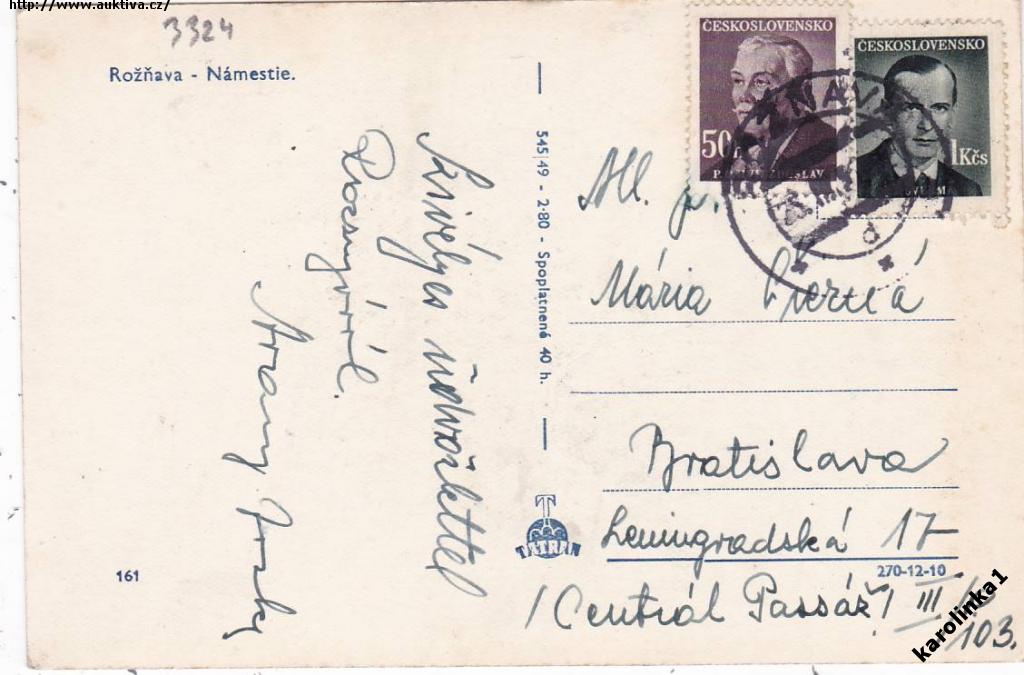 http://www.auktiva.cz/
3324
Rožňava - Námestie.
Szivélyes üdvözlettel
Rozsnyóról.
Arany
545|49 - 2·80 - Spoplatnené 40 h.
TATRAN
161
ČESKOSLOVENSKO
50
ČESKOSLOVENSKO
1Kčs
Mária
Bratislava
Leningradská 17
270-12-10
/ Centrál Passáž / III
103.
karolinka1